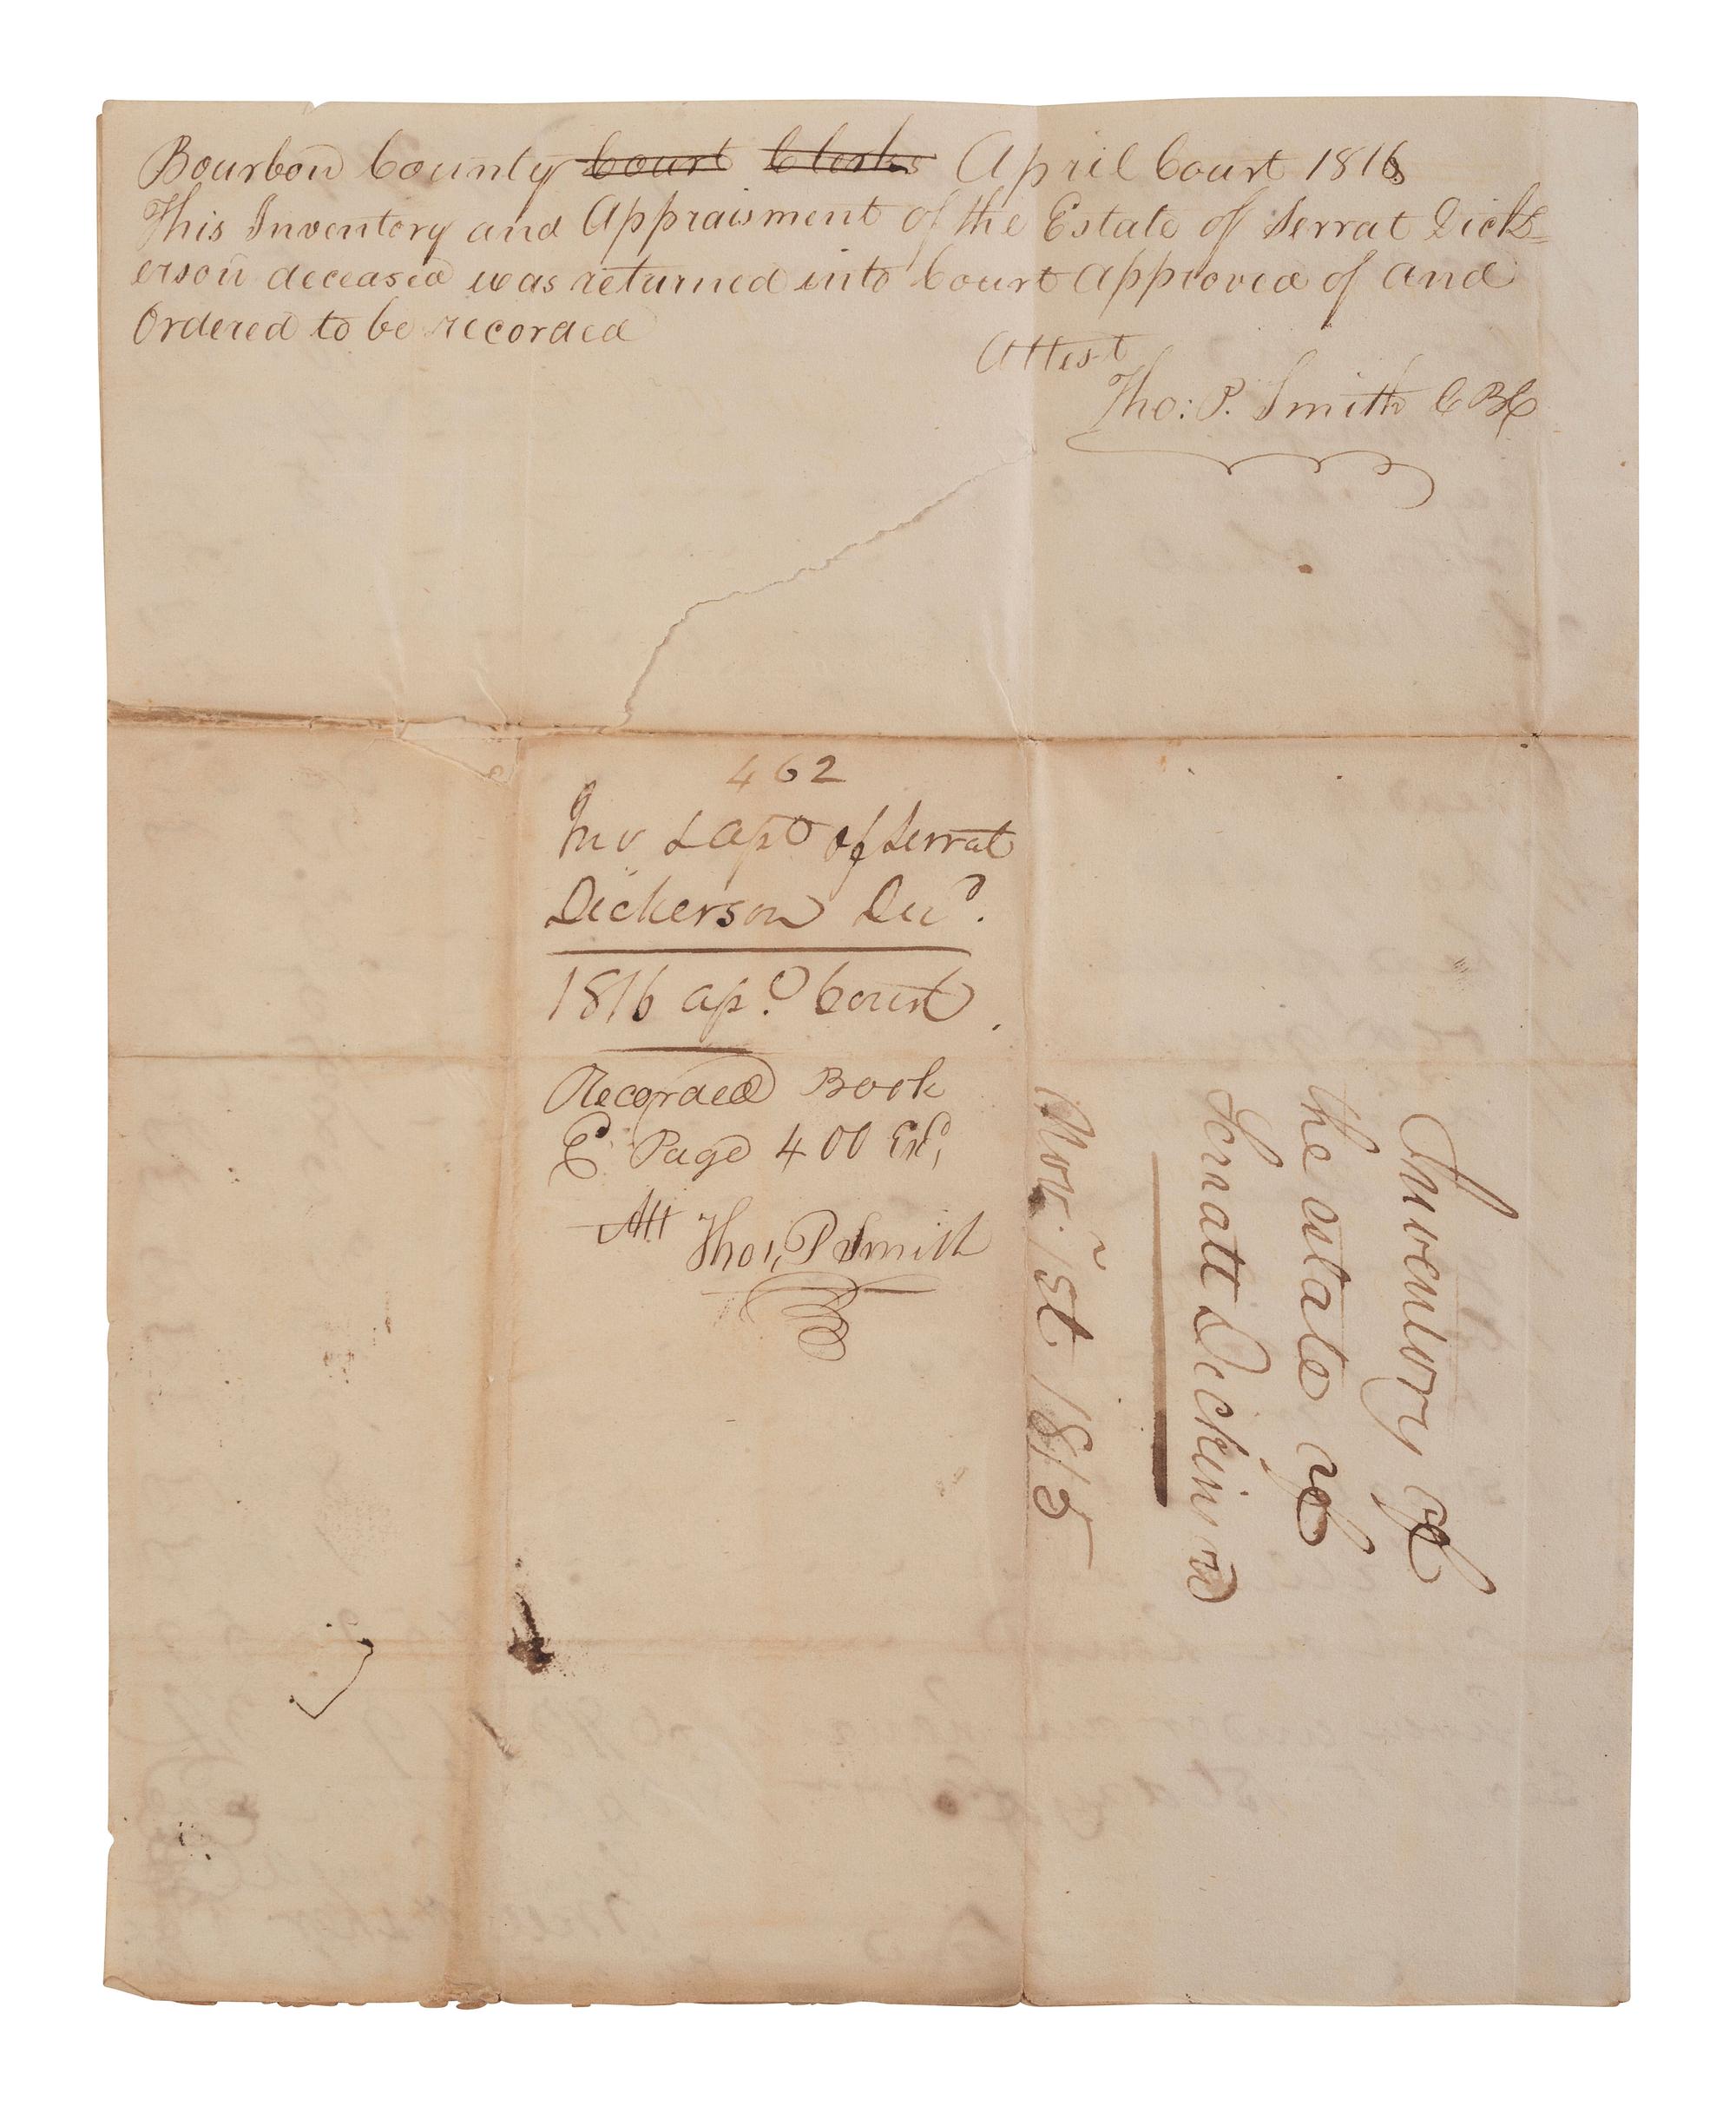 Bourbon County Court Clerks April Court 1816
This Inventory and Appraisment of the Estate of Serrat Dick=
erson deceased was returned into Court approved of and
Ordered to be recorded
Attest
Tho: P. Smith C B C
462
Inv & Apt of Serrat
Dickerson Decd.
1816 ap. Court
Recorded Book
E Page 400
Att Tho, P Smith
Inventory of
the estate of
Serratt Dickerson
Nov. 1st 1815